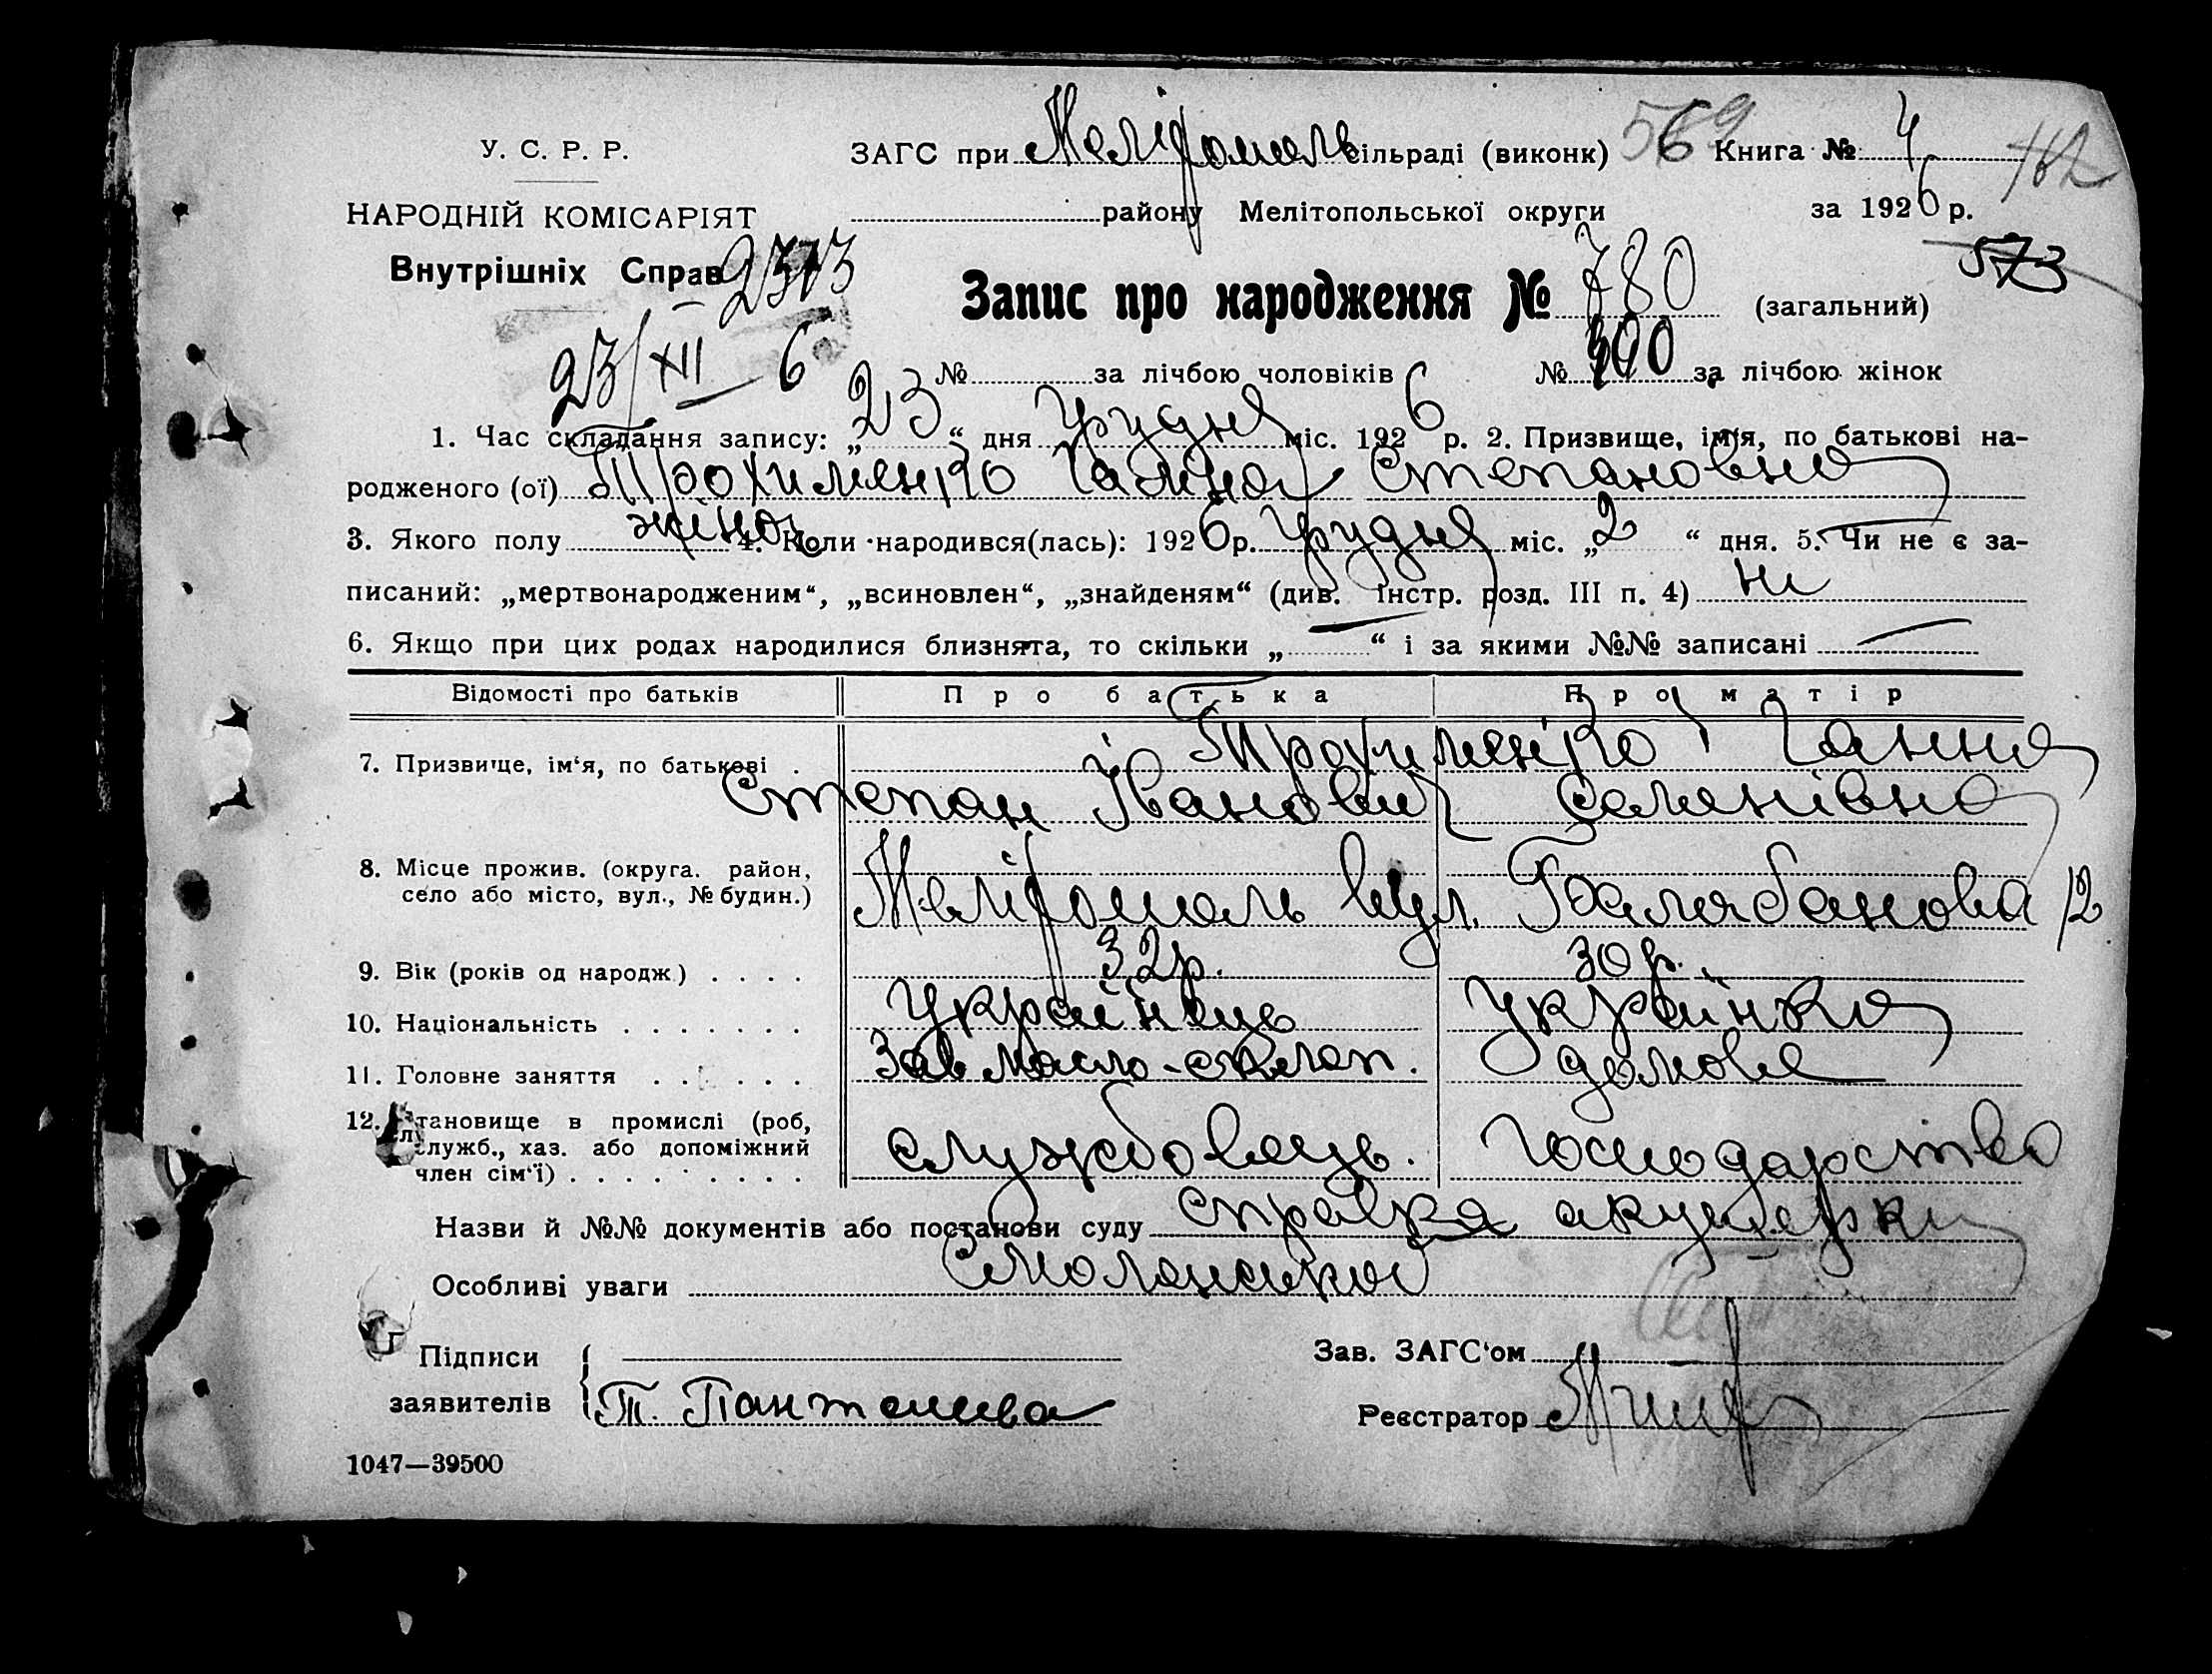 У. С. Р. Р.
НАРОДНІЙ КОМІСАРІЯТ
Внутрішніх Справ
2313
23/XII 6
ЗАГС при Мелітополь сільраді (виконк) 569 Книга № 4
району Мелітопольської округи за 1926 р.
573
Запис про народження № 780 (загальний)
№ за лічбою чоловіків № 400 за лічбою жінок
1. Час складання запису: „23“ дня грудня міс. 1926 р. 2. Призвище, ім'я, по батькові на-
родженого (ої) Трохименко Галина Степановна
3. Якого полу жіноч 4. Коли народився(лась): 1926 р. грудня міс. „2“ дня. 5. Чи не є за-
писаний: „мертвонародженим“, „всиновлен“, „знайденям“ (див. Інстр. розд. III п. 4) ні
6. Якщо при цих родах народилися близнята, то скільки „ — “ і за якими №№ записані —
Відомості про батьків Про батька Про матір
7. Призвище, ім‘я, по батькові . Трохименко Ганна
Степан Іванович Семенівна
8. Місце прожив. (округа. район,
село або місто, вул., № будин.) Мелітополь вул. Балабанова 12
9. Вік (років од народж.) . . . . 32 р. 30 р.
10. Національність . . . . . . . Українець Українка
11. Головне заняття . . . . . . Зав масло-склад. домове
12. Становище в промислі (роб,
служб., хаз. або допоміжний
член сім‘ї) . . . . . . . . службовець. господарство
Назви й №№ документів або постанови суду справка акушерки
Особливі уваги Смоленской
Підписи
заявителів Т. Пантелеева
Зав. ЗАГС‘ом
Реєстратор
1047—39500